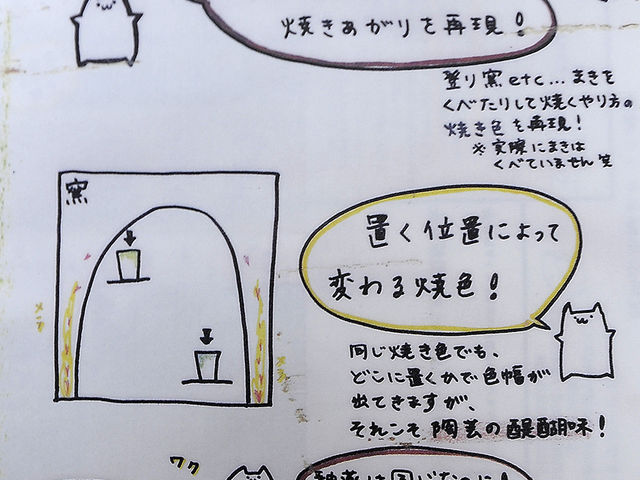 焼きあがりを再現！
登り窯etc...まきを
くべたりして焼くやり方の
焼き色を再現！
※実際にまきは
くべていません笑
窯
置く位置によって
変わる焼色！
同じ焼き色でも、
どこに置くかで色幅が
出てきますが、
それこそ陶芸の醍醐味！
ワク
釉薬は同じなのに！